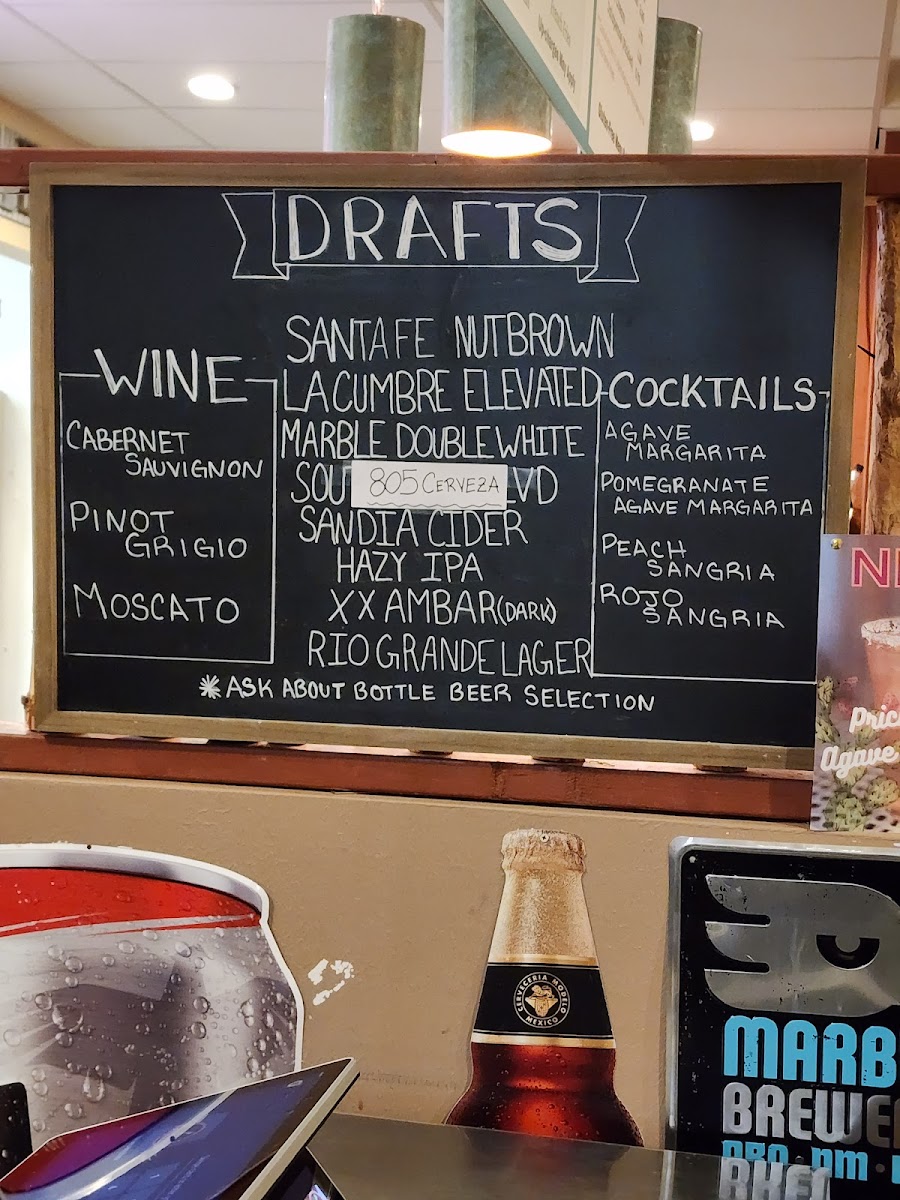 DRAFTS
WINE
CABERNET
SAUVIGNON
PINOT
GRIGIO
MOSCATO
SANTA FE NUTBROWN
LA CUMBRE ELEVATED
MARBLE DOUBLE WHITE
805 CERVEZA
SANDIA CIDER
HAZY IPA
XX AMBAR (DARK)
RIO GRANDE LAGER
COCKTAILS
AGAVE
MARGARITA
POMEGRANATE
AGAVE MARGARITA
PEACH
SANGRIA
ROJO
SANGRIA
* ASK ABOUT BOTTLE BEER SELECTION
Agave
CERVECERIA MODELO
MEXICO
MARB
BREWE